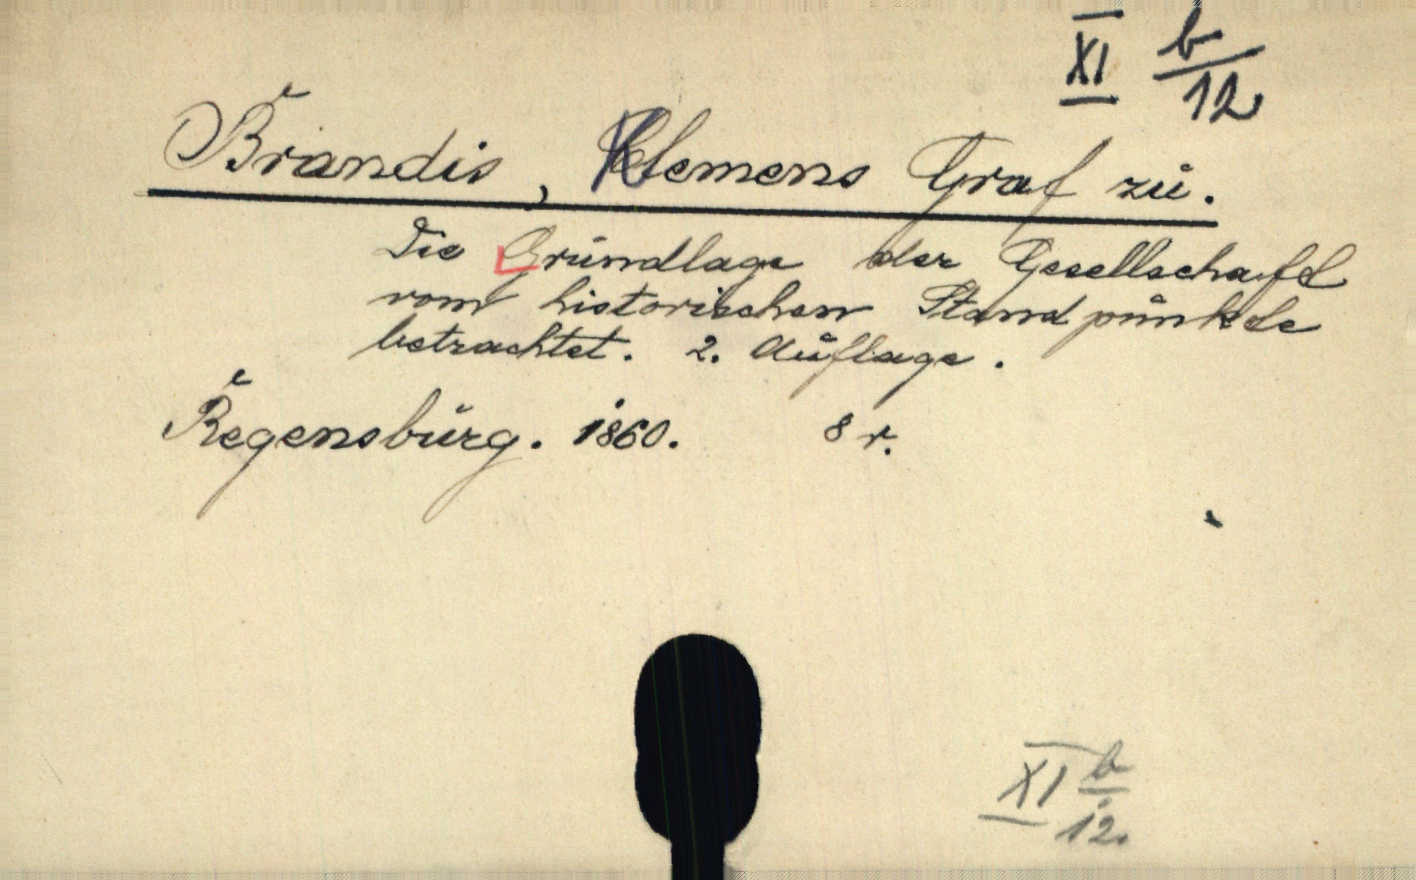 XI b/12
Brandis, Klemens Graf zu.
Die Grundlage der Gesellschaft
vom historischen Standpunkte
betrachtet. 2. Auflage.
Regensburg. 1860. 8 r.
XI b/12.